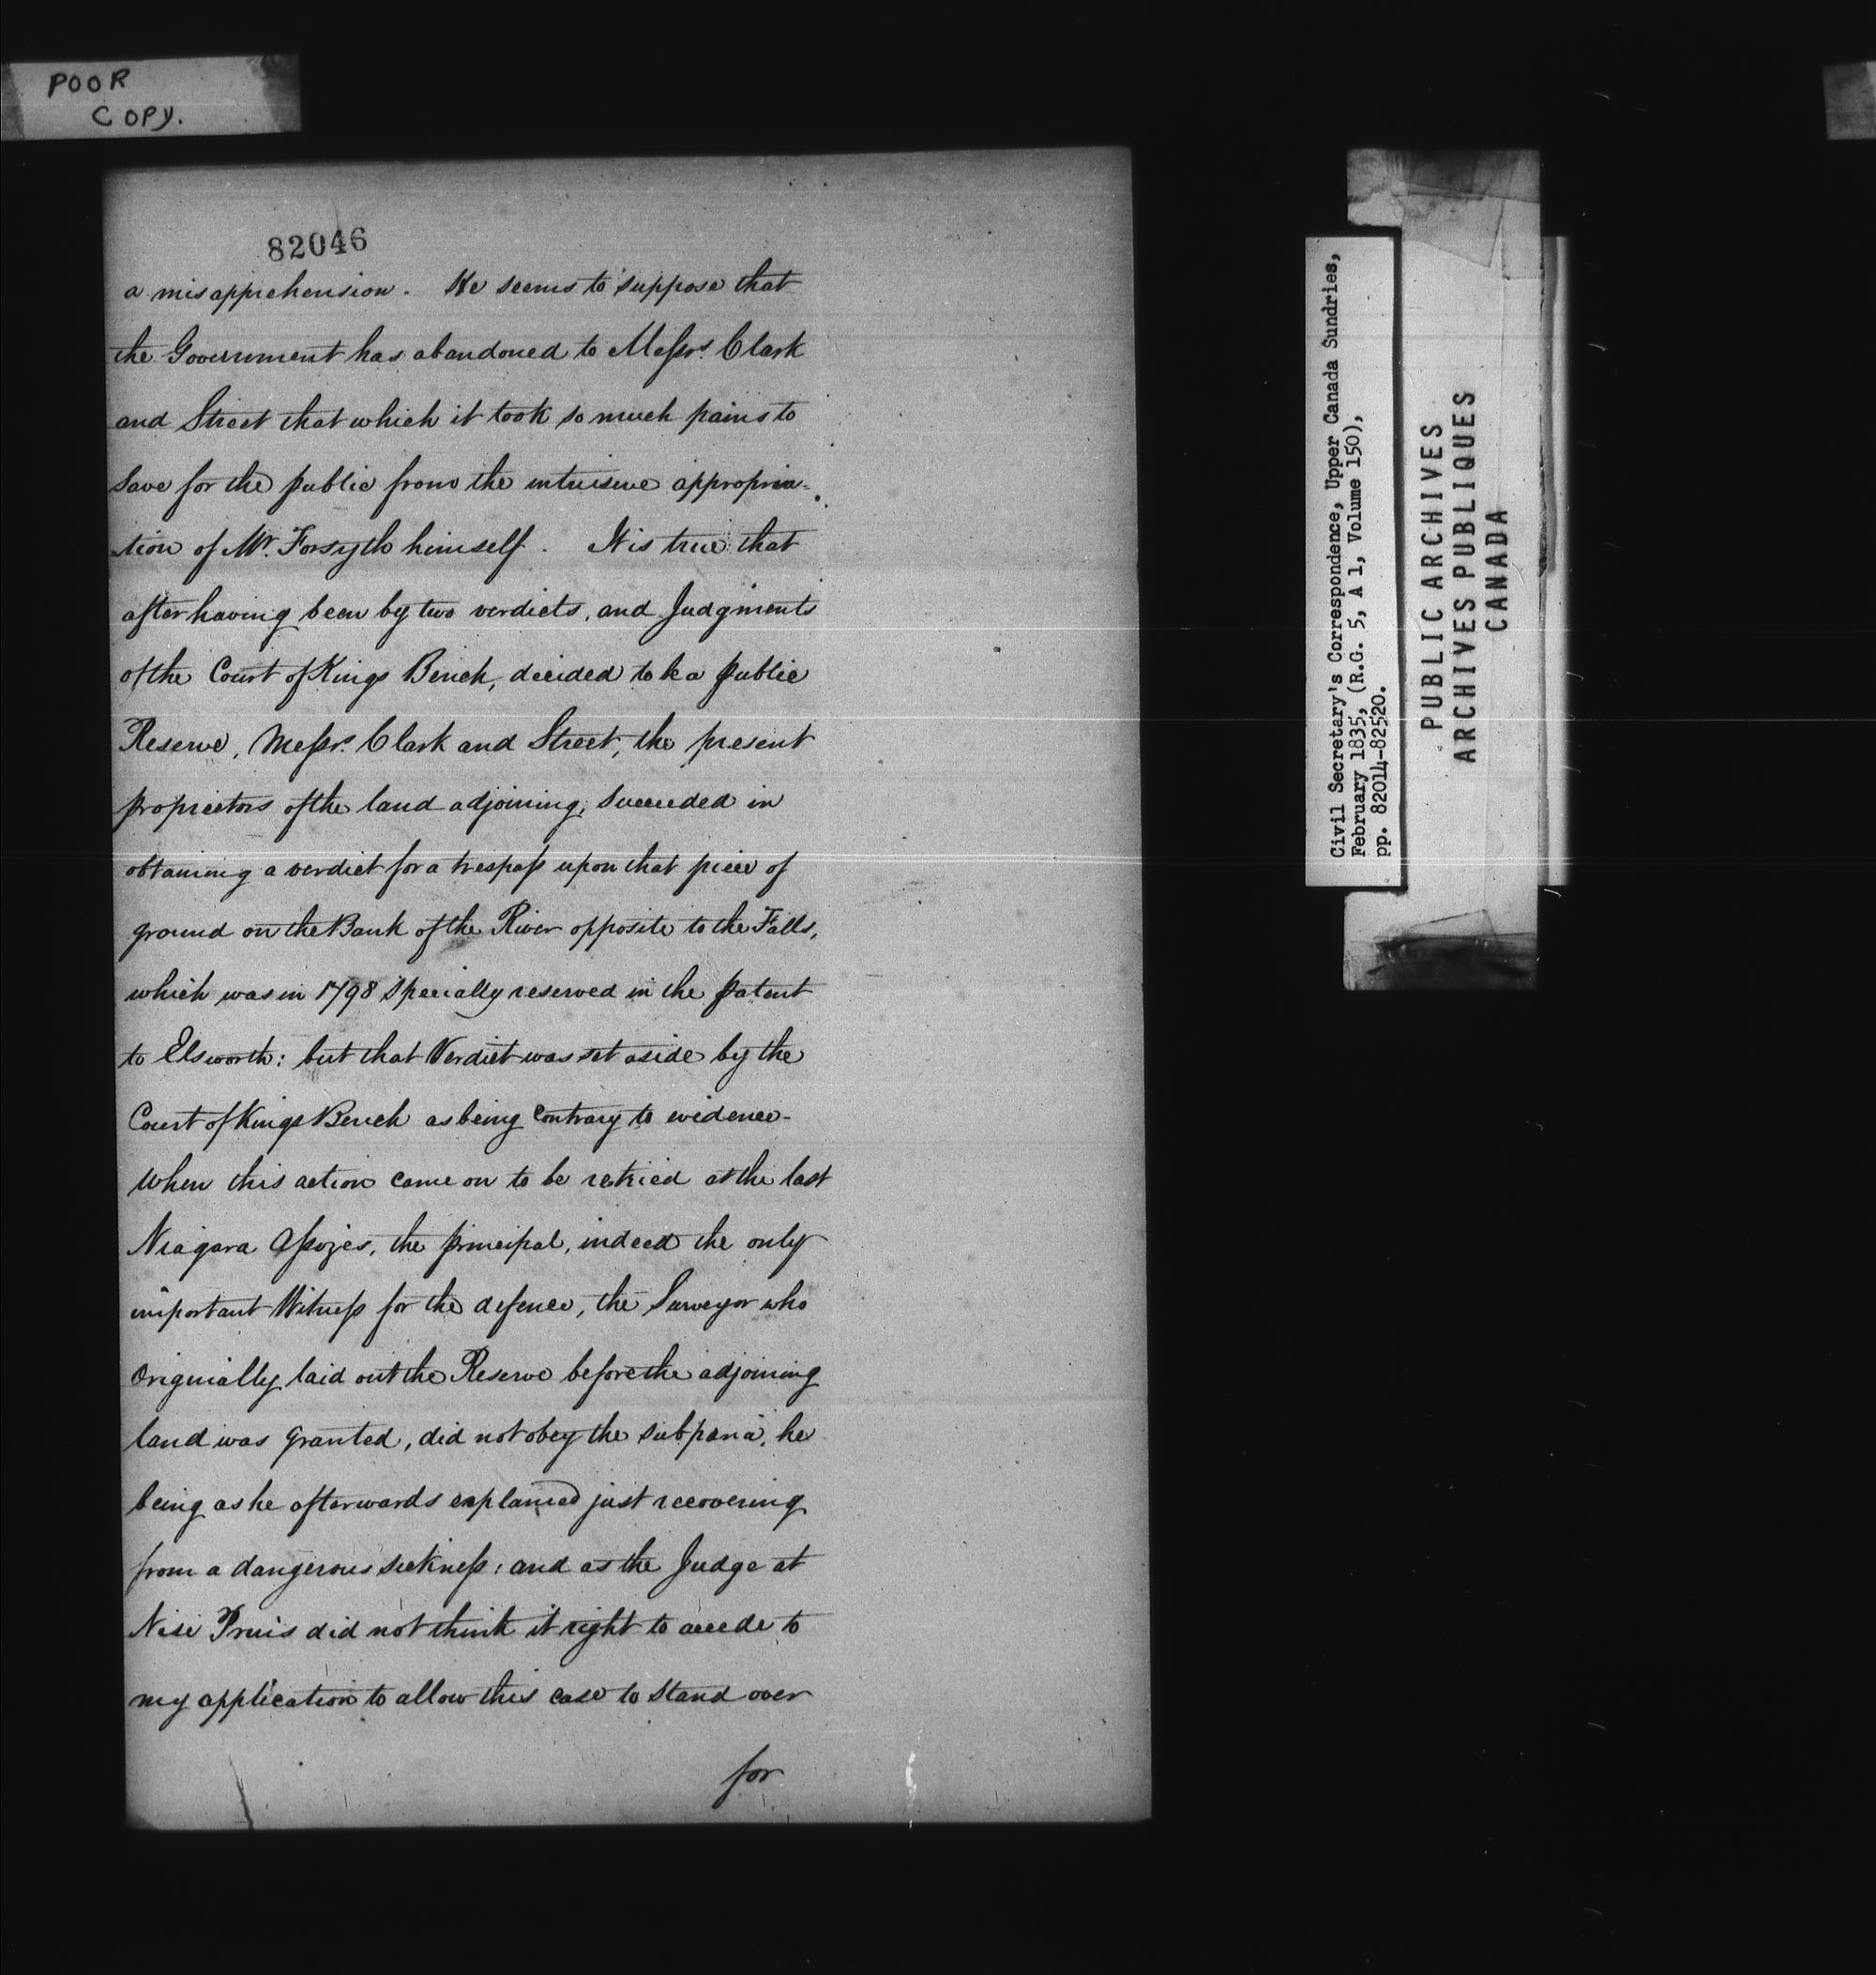 POOR
COPY.
82046
a misapprehension. He seems to suppose that
the Government has abandoned to Messrs. Clark
and Street that which it took so much pains to
save for the public from the intrusive appropria-
tion of Mr. Forsyth himself. It is true that
after having been by two verdicts, and Judgments
of the Court of Kings Bench, decided to be a public
Reserve, Messrs. Clark and Street, the present
proprietors of the land adjoining, succeeded in
obtaining a verdict for a trespass upon that piece of
ground on the Bank of the River opposite to the Falls,
which was in 1798 specially reserved in the patent
to Elsworth: but that Verdict was set aside by the
Court of Kings Bench as being contrary to evidence-
when this action came on to be retried at the last
Niagara Assizes, the principal, indeed the only
important Witness for the defence, the Surveyor who
originally laid out the Reserve before the adjoining
land was granted, did not obey the subpœna, he
being as he afterwards explained just recovering
from a dangerous sickness; and as the Judge at
Nisi Prius did not think it right to accede to
my application to allow this case to stand over
for
Civil Secretary's Correspondence, Upper Canada Sundries,
February 1835, (R.G. 5, A 1, Volume 150),
pp. 82014-82520.
PUBLIC ARCHIVES
ARCHIVES PUBLIQUES
CANADA